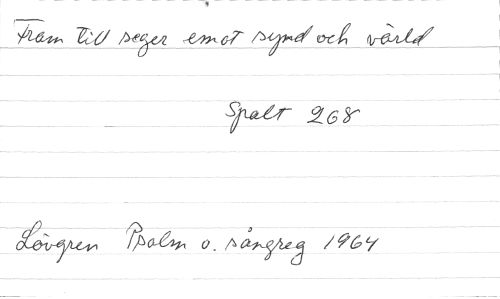 Fram till seger emot synd och värld
Spalt 268
Lövgren Psalm o. sångreg 1964